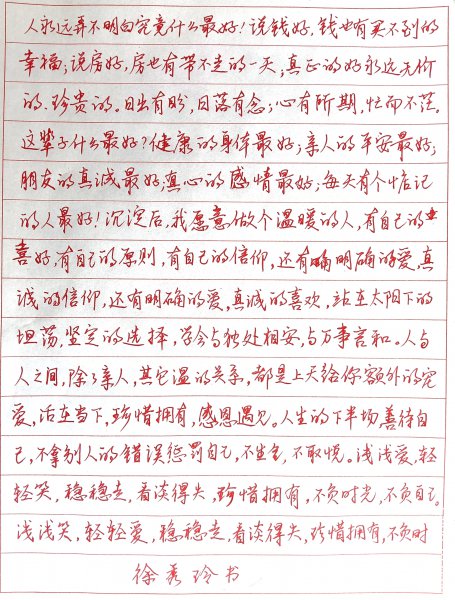 人永远弄不明白究竟什么最好！说钱好，钱也有买不到的
幸福；说房好，房也有带不走的一天；真正的好永远无价
的，珍贵的。日出有盼，日落有念；心有所期，忙而不茫。
这辈子什么最好？健康的身体最好；亲人的平安最好；
朋友的真诚最好；真心的感情最好；每天有个惦记
的人最好！沉淀后，我愿意做个温暖的人，有自己的
喜好，有自己的原则，有自己的信仰，还有明确的爱，真
诚的信仰，还有明确的爱，真诚的喜欢，站在太阳下的
坦荡，坚定的选择，学会与独处相安，与万事言和。人与
人之间，除了亲人，其它温的关系，都是上天给你额外的宠
爱，活在当下，珍惜拥有，感恩遇见。人生的下半场善待自
己，不拿别人的错误惩罚自己，不生气，不取悦。浅浅爱，轻
轻笑，稳稳走，看淡得失，珍惜拥有，不负时光，不负自己。
浅浅笑，轻轻爱，稳稳走，看淡得失，珍惜拥有，不负时
徐秀玲书